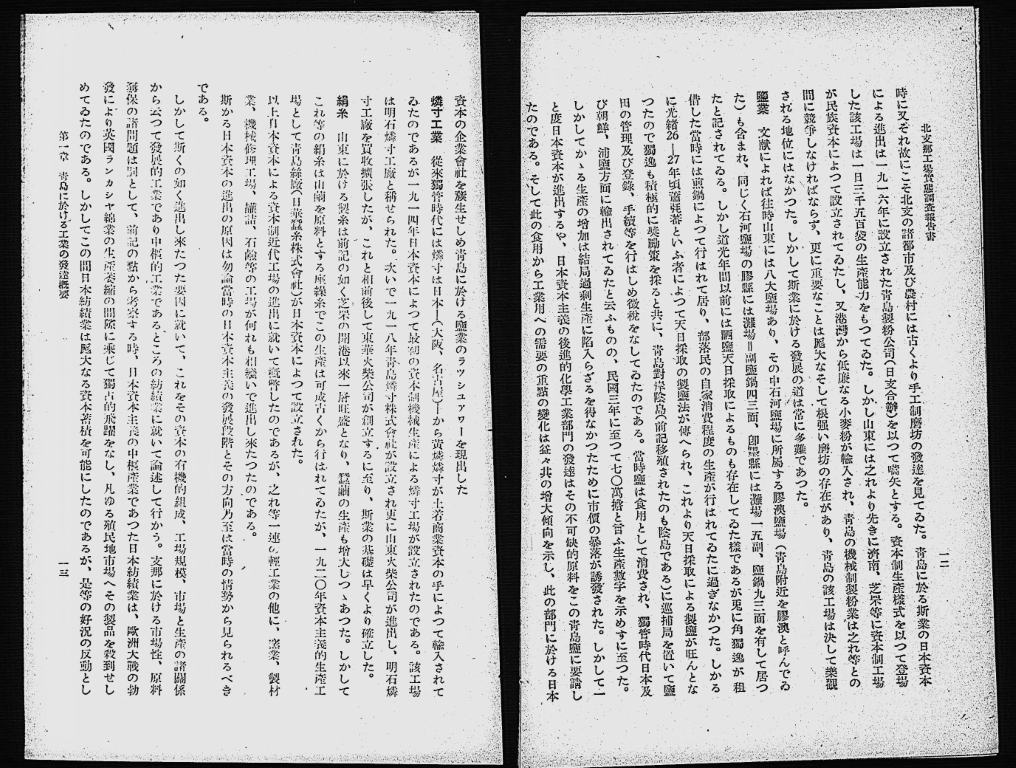 北支那工場實態調査報告書
一二
時に又それ故にこそ北支の諸都市及び農村には古くより手工制磨坊の發達を見てゐた。青島に於る斯業の日本資本
による進出は一九一六年に設立された青島製粉公司(日支合辦)を以つて嚆矢とする。資本制生產樣式を以つて登場
した該工場は一日三千五百袋の生產能力をもつてゐた。しかし山東には之れより先きに濟南、芝罘等に資本制工場
が民族資本によつて設立されてゐたし、又港灣から低廉なる小麥粉が輸入され、青島の機械制製粉業は之れ等との
間に競爭しなければならず、更に重要なことは尨大なそして根强い磨坊の存在があり、青島の該工場は決して樂觀
される地位にはなかつた。しかして斯業に於ける發展の道は常に多難であつた。
鹽業 文獻によれば往時山東には八大鹽場あり、その中石河鹽場に所屬する膠澳鹽場(青島附近を膠澳と呼んでゐ
た)も含まれ、同じく石河鹽場の膠縣には灘場Ⅱ副鹽鍋四三面、卽墨縣には灘場一五副、鹽鍋九三面を有して居つ
たと記されてゐる。しかし道光年間以前には晒鹽天日採取によるものも存在してゐた樣であるが兎に角獨逸が租
借した當時には煎鍋によつて行はれて居り、部落民の自家消費程度の生產が行はれてゐたに過ぎなかつた。しかる
に光緖26―27年頃といふ者によつて天日採取の製鹽法が傳へられ、これより天日採取による製鹽が旺んとな
つたので獨逸も積極的に奬勵策を採ると共に、青島對岸陰島(前記移殖されたのも陰島である)に巡捕局を置いて鹽
田の管理及び登錄、手續等を行はしめ徵稅をなしてゐたのである。當時鹽は食用として消費され、獨管時代日本及
び朝鮮、浦鹽方面に輸出されてゐたと云ふものの、民國三年に至つて七〇萬擔と言ふ生產數字を示めすに至つた。
しかしてかゝる生產の增加は結局過剩生產に陷入らざるを得なかつたために市價の暴落が誘發された。しかして一
と度日本資本が進出するや、日本資本主義の後進的化學工業部門の發達はその不可缺的原料をこの青島鹽に要請し
たのである。そして此の食用から工業用への需要の重點の變化は益々其の增大傾向を示し、此の部門に於ける日本
資本の企業會社を簇生せしめ青島に於ける鹽業のラツシユアワーを現出した
燐寸工業 從來獨管時代には燐寸は日本―(大阪、名古屋)―から黃燐燐寸が土着商業資本の手によつて輸入されて
ゐたのであるが一九一四年日本資本によつて最初の資本制機械生產による燐寸工場が設立されたのである。該工場
は明石燐寸工廠と稱せられた。次いで一九一八年青島燐寸株式會社が設立され更に山東火柴公司が進出し、明石燐
寸工廠を買收擴張したが、これと相前後して東華火柴公司が創立するに至り、斯業の基礎は早くより確立した。
絹糸 山東に於ける製糸は前記の如く芝罘の開港以來一層旺盛となり、蠶繭の生產も增大しつゝあつた。しかして
これ等の絹糸は山繭を原料とする座繰糸でこの生產は可成古くから行はれてゐたが、一九二〇年資本主義的生產工
場として青島絲廠(日華蠶糸株式會社)が日本資本によつて設立された。
以上日本資本による資本制近代工場の進出に就いて槪觀したのであるが、之れ等一連の輕工業の他に、窯業、製材
業、機械修理工場、罐詰、石鹼等の工場が何れも相繼いで進出し來たつたのである。
斯かる日本資本の進出の原因は勿論當時の日本資本主義の發展段階とその方向乃至は當時の情勢から見られるべき
である。
しかして斯くの如く進出し來たつた要因に就いて、これをその資本の有機的組成、工場規模、市場と生產の諸關係
から云つて發展的工業であり中樞的工業であるところの紡績業に就いて論述して行かう。支那に於ける市場性、原料
確保の諸問題は別として、前記の點から考察する時、日本資本主義の中樞產業であつた日本紡績業は、歐洲大戰の勃
發により英國ランカシヤ綿業の生產萎縮の間隙に乘じて獨占的飛躍をなし、凡ゆる殖民地市場へその製品を殺到せし
めてゐたのである。しかしてこの間日本紡績業は尨大なる資本蓄積を可能にしたのであるが、是等の好況の反動とし
第一章 青島に於ける工業の發達槪要
一三